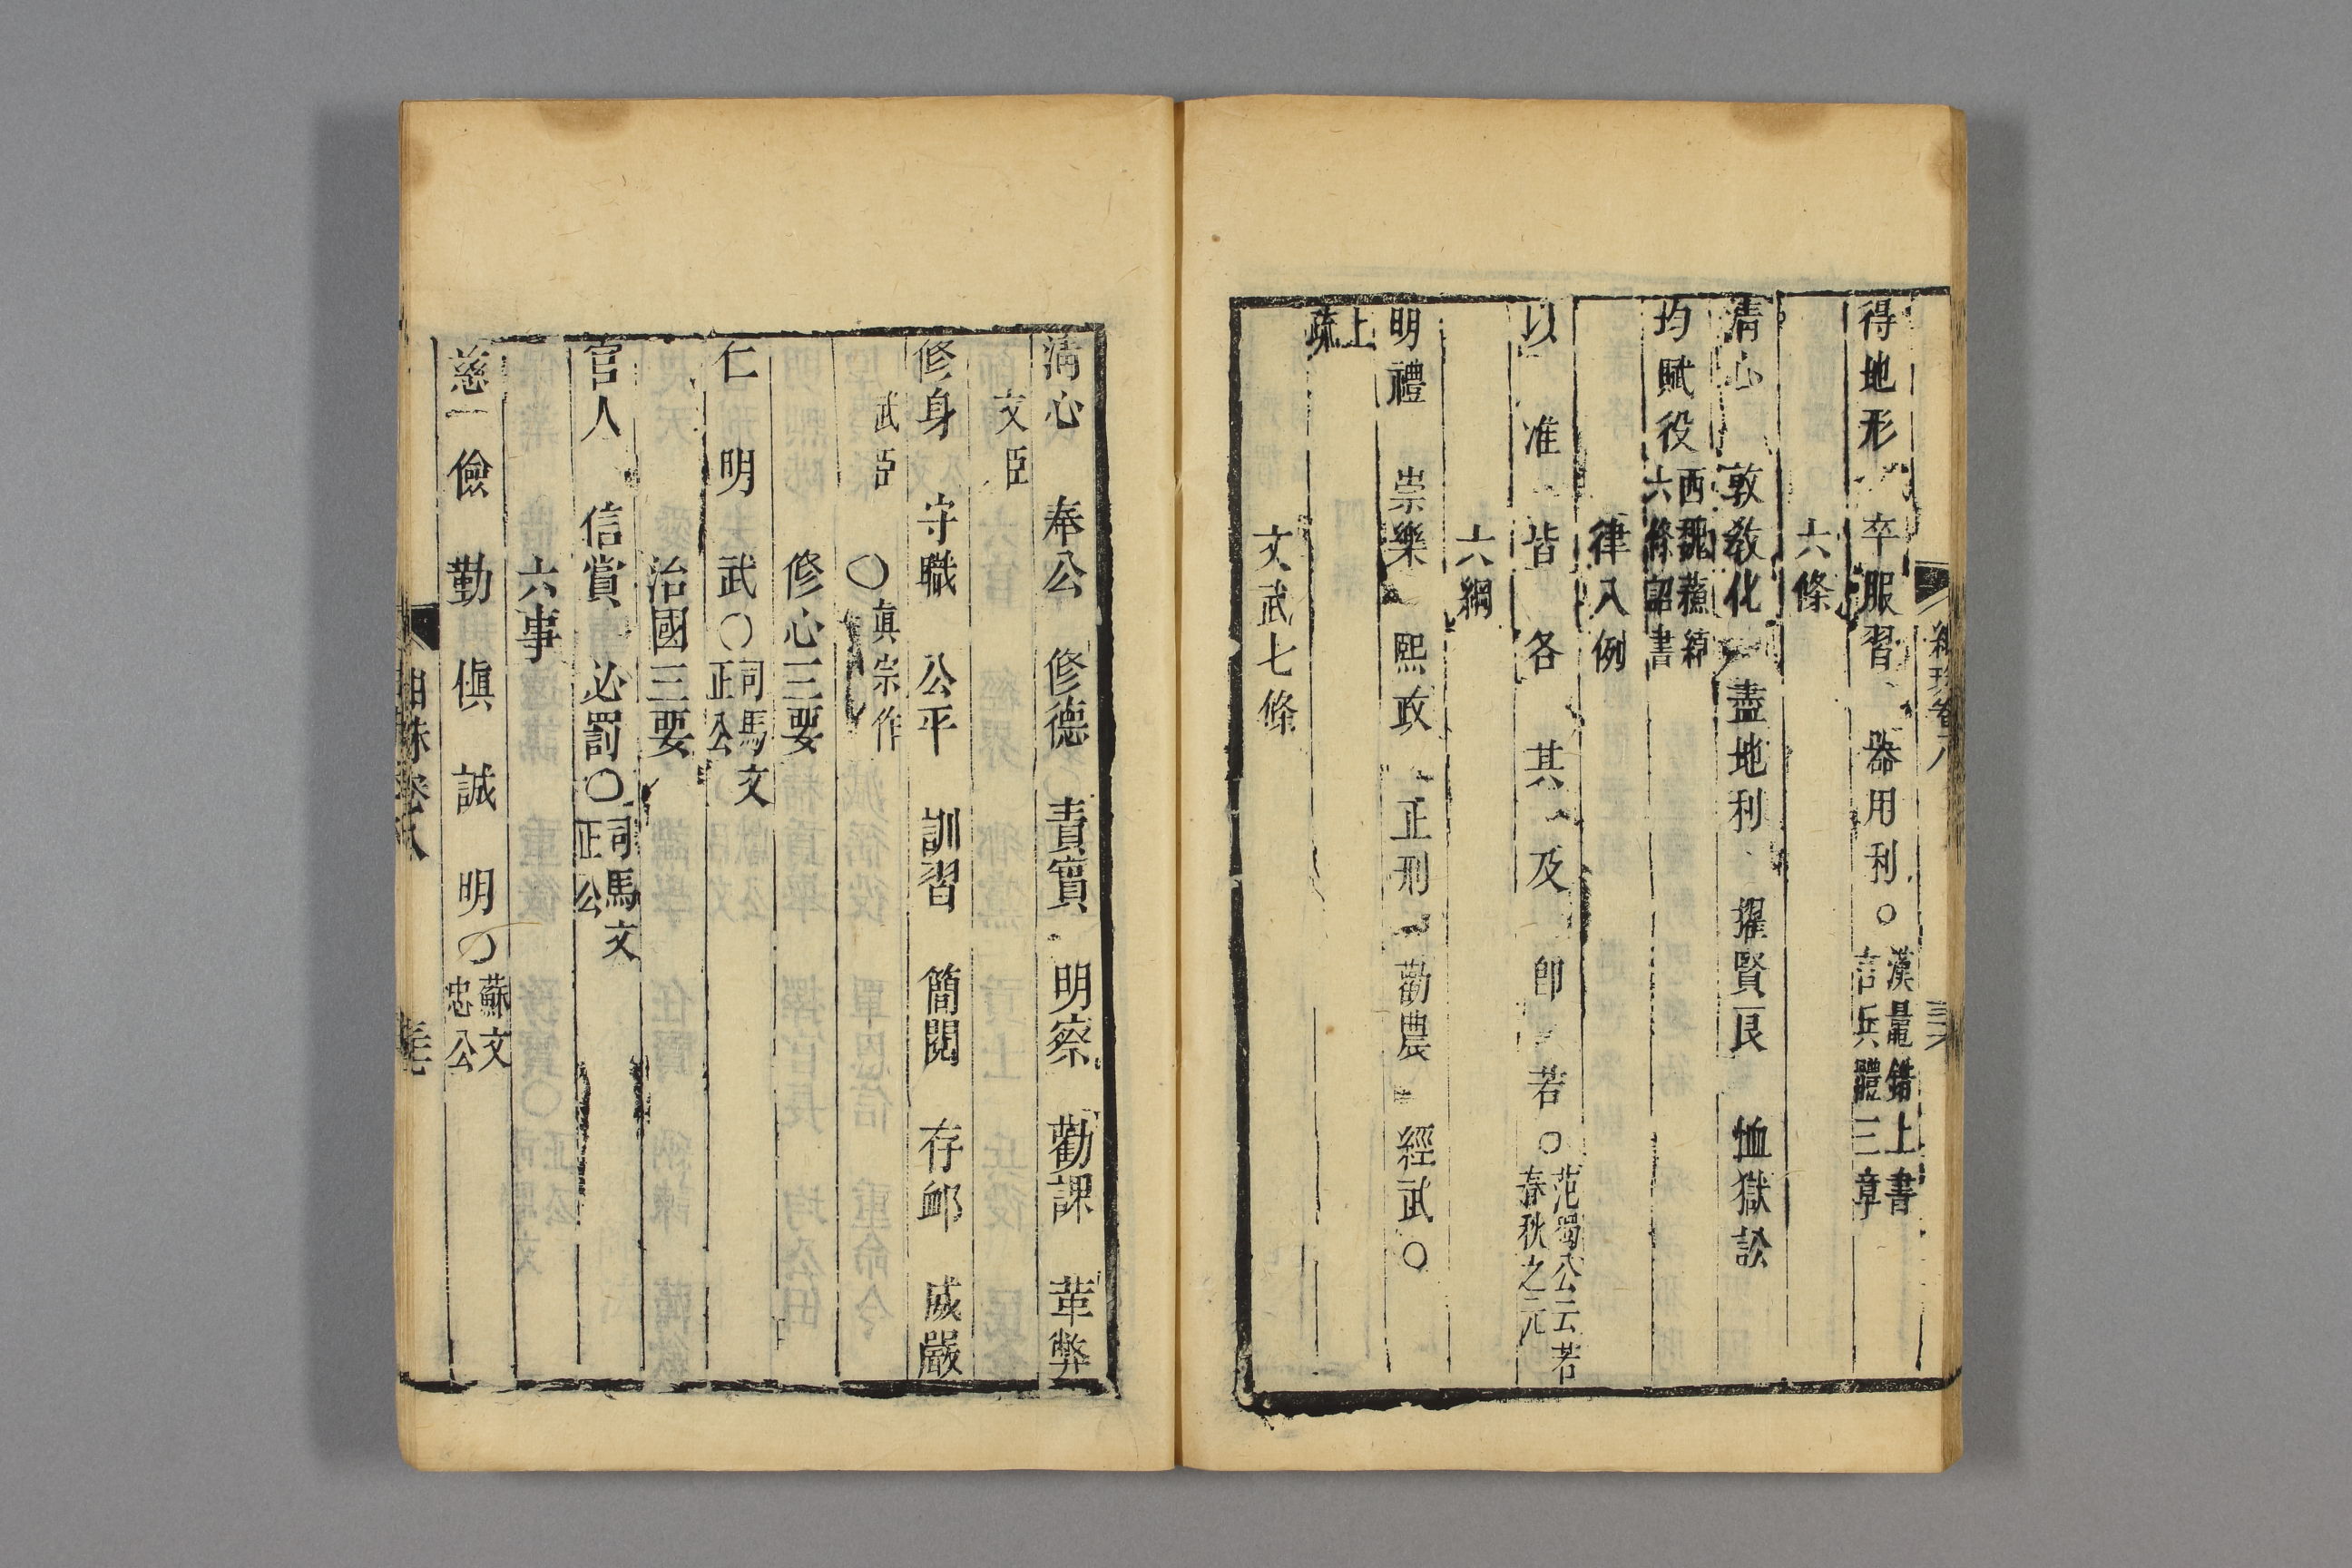 得地形　卒服習　器用利○漢鼂錯上書言兵體三章
六條
清心　敦敎化　盡地利　擢賢良　恤獄訟
均賦役西魏蘇綽六條詔書
律八例
以　准　皆　各　其　及　卽　若○范蜀公云若春秋之凡
六綱
明禮　崇樂　熙政　正刑　勸農　經武○
上疏
文武七條
清心　奉公　修德　責實　明察　勸課　革弊
文臣
修身　守職　公平　訓習　簡閱　存卹　威嚴
武臣　○眞宗作
修心三要
仁　明　武○司馬文正公
治國三要
官人　信賞　必罰○司馬文正公
六事
慈　儉　勤　愼　誠　明○蘇文忠公